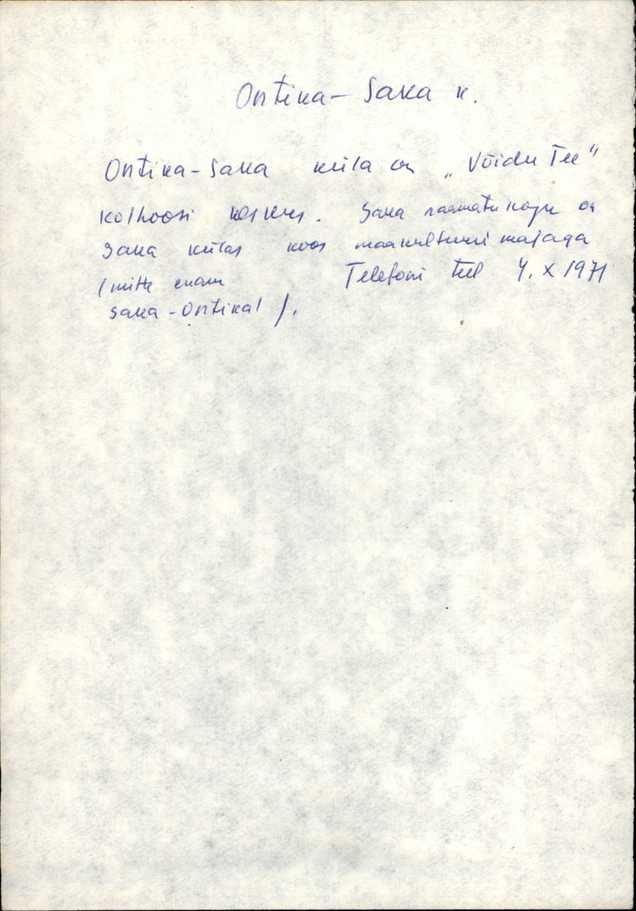 Ontika-Saka k.
Ontika-Saka küla on „Võidu Tee"
kolhoosi keskus. Saka raamatukogu on
Saka külas koos maakultuurimajaga
(mitte enam Telefoni teel 4. X 1971
Saka-Ontika!).